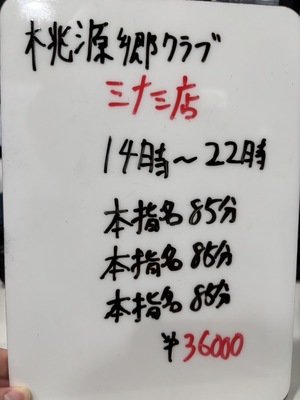 桃源郷クラブ
ミナミ店
14時～22時
本指名85分
本指名85分
本指名85分
¥36000